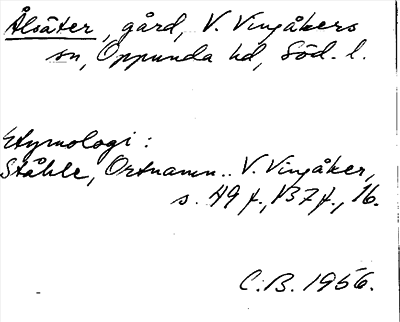 Ålsäter, gård, V. Vingåkers
sn, Oppunda hd, Söd. l.
Etymologi:
Ståhle, Ortnamn.. V. Vingåker,
s. 49 f., 137 f., 16.
C.B. 1956.